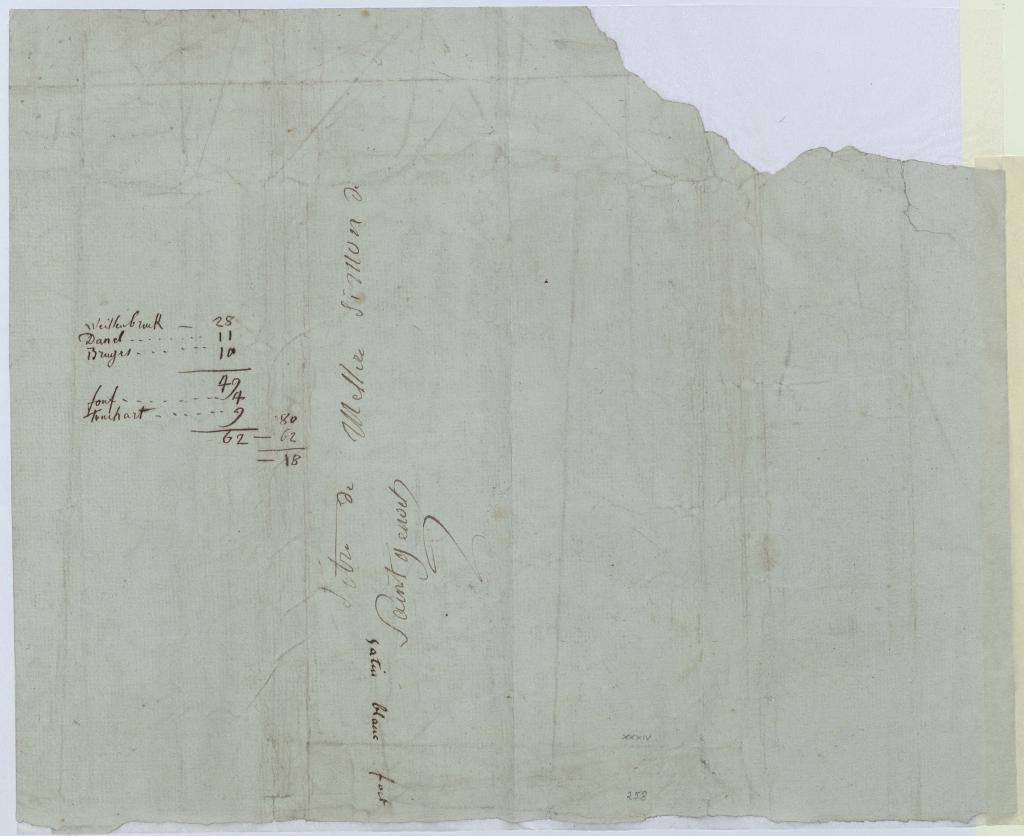 Weissenbruck — 28
Danel - - - - - - - 11
Bruges - - - - - 10
49
font - - - - - - - 4
Touchart - - - - - 9
62
80
— 62
— 18
de Messire Simon de
Saint Genois
Satin blanc fort
XXXIV
258